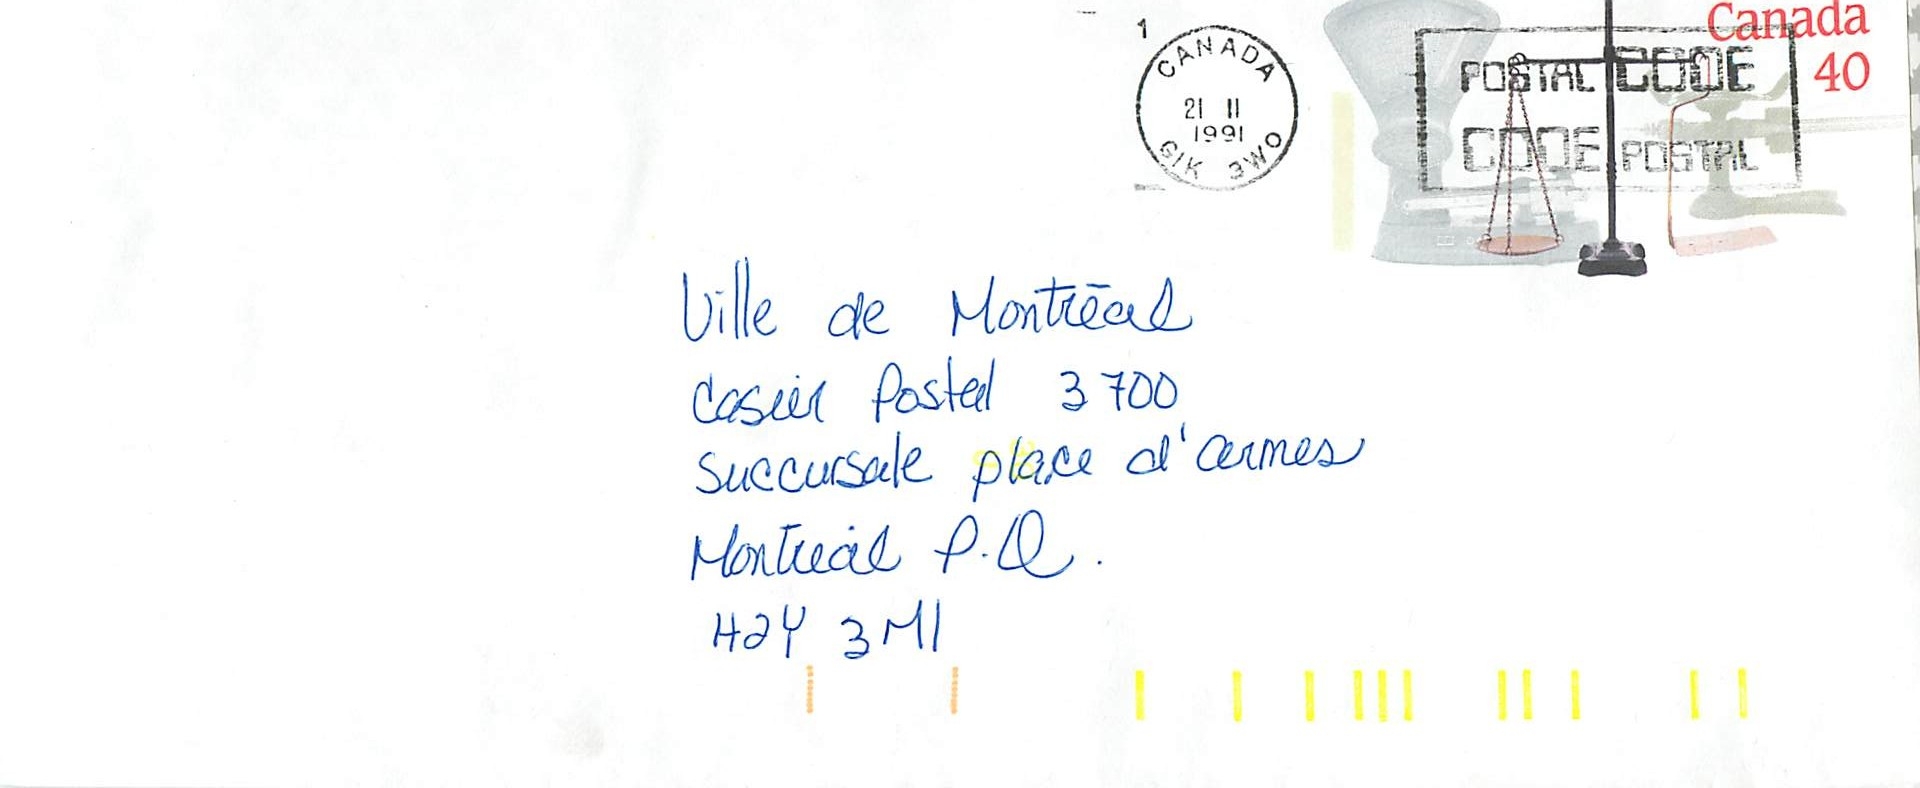 1
CANADA
21 11
1991
G1K 3W0
Canada
40
POSTAL CODE
CODE POSTAL
Ville de Montréal
Casier Postal 3700
Succursale place d'armes
Montréal P.Q.
H2Y 3M1